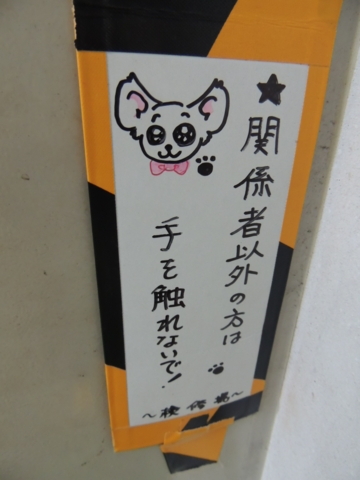 ★関係者以外の方は
手を触れないで!
~検修場~